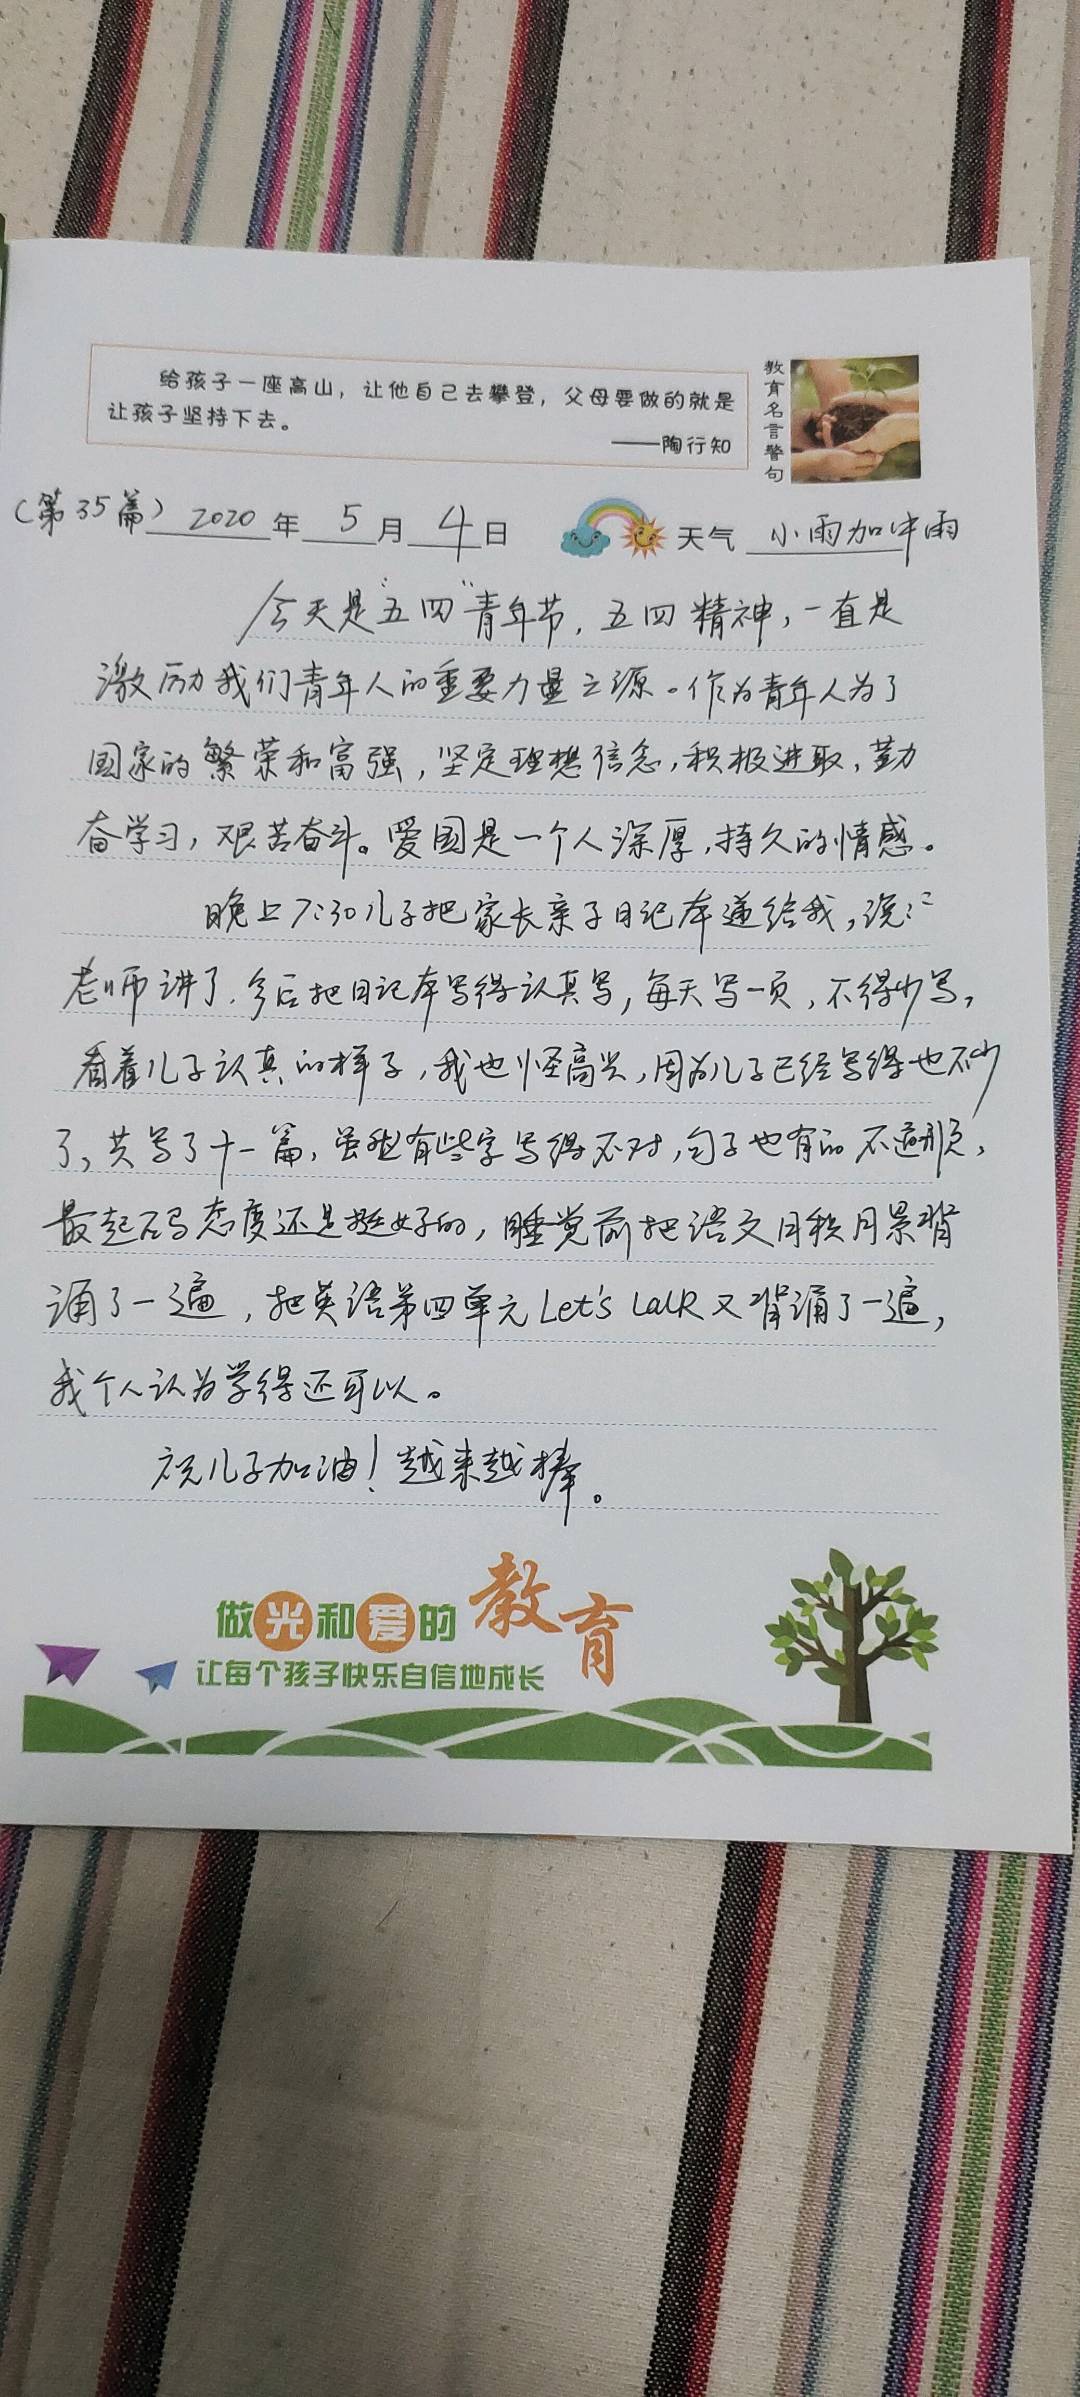 给孩子一座高山，让他自己去攀登，父母要做的就是
让孩子坚持下去。
——陶行知
教育名言警句
（第35篇）2020年5月4日 天气 小雨加中雨
今天是“五四”青年节，五四精神，一直是
激励我们青年人的重要力量之源。作为青年人为了
国家的繁荣和富强，坚定理想信念，积极进取，勤
奋学习，艰苦奋斗。爱国是一个人深厚，持久的情感。
晚上7:30儿子把家长亲子日记本递给我，说：
老师讲了，今后把日记本写得认真写，每天写一页，不得少写，
看着儿子认真的样子，我也怪高兴，因为儿子已经写得也不少
了，共写了十一篇，虽然有些字写得不对，句子也有的不通顺，
最起码态度还是挺好的，睡觉前把语文月积月累背
诵了一遍，把英语第四单元Let's talk又背诵了一遍，
我个人认为学得还可以。
祝儿子加油！越来越棒。
做光和爱的教育
让每个孩子快乐自信地成长